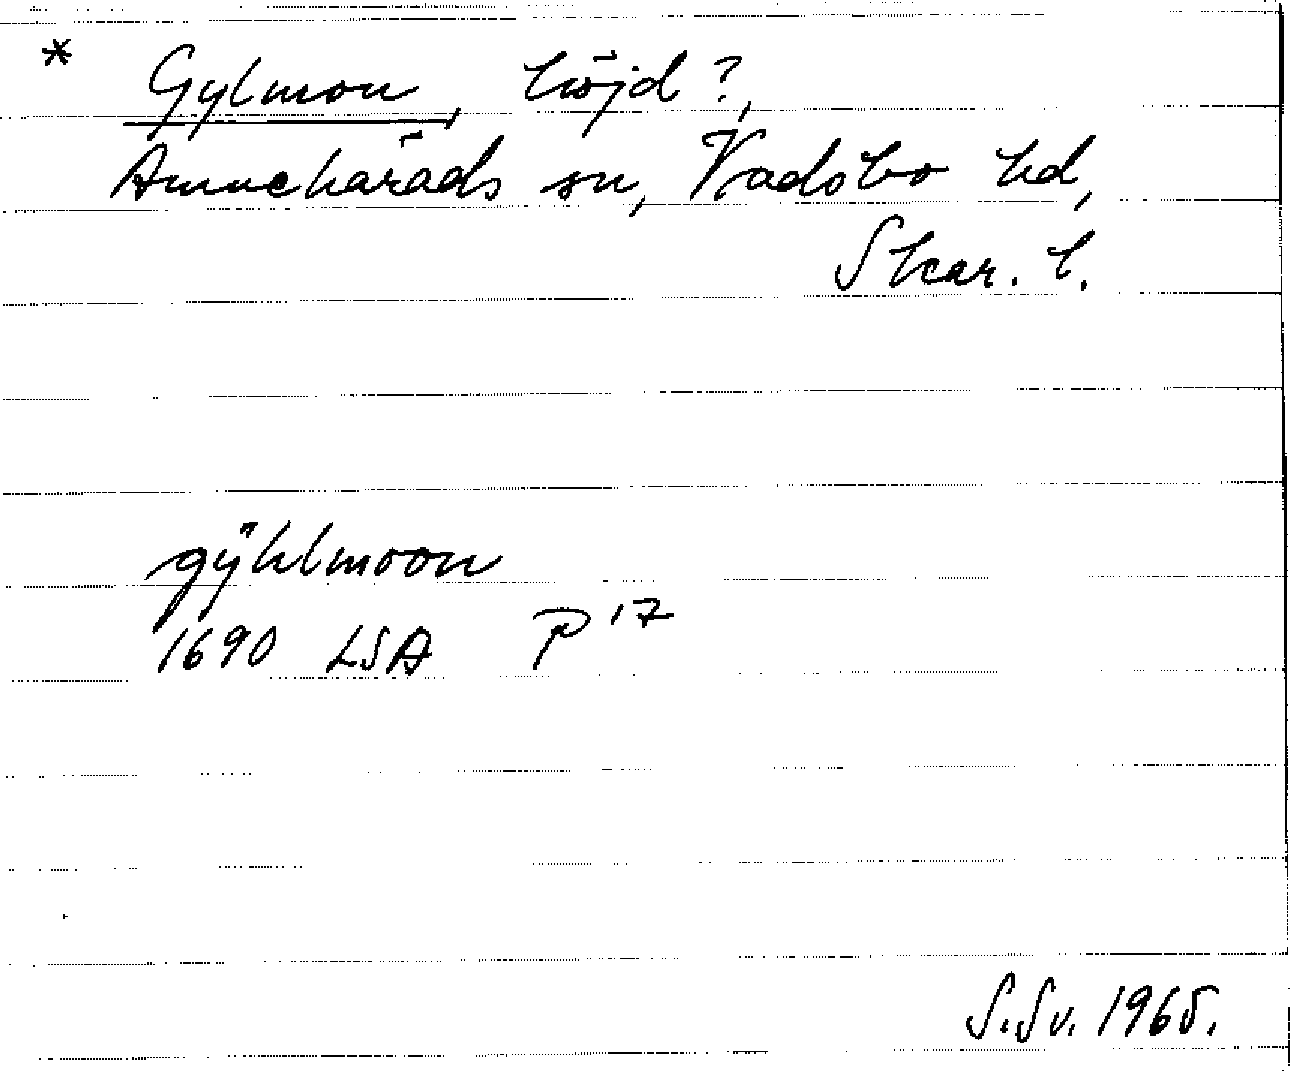 * Gylmon, höjd?,
Amnehärads sn, Vadsbo hd,
Skar. l.
gÿhlmoon
1690 LSA P 17
S. Sv. 1965.